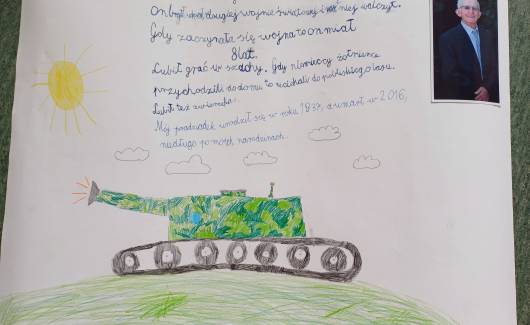 On był w drugiej wojnie światowej i w niej walczył.
Gdy zaczynała się wojna to on miał
8 lat.
Lubił grać w szachy. Gdy niemieccy żołnierze
przychodzili do domu to uciekali do pobliskiego lasu.
Lubił też zwierzęta.
Mój pradziadek urodził się w roku 1937, a umarł w 2016,
niedługo po moich narodzinach.